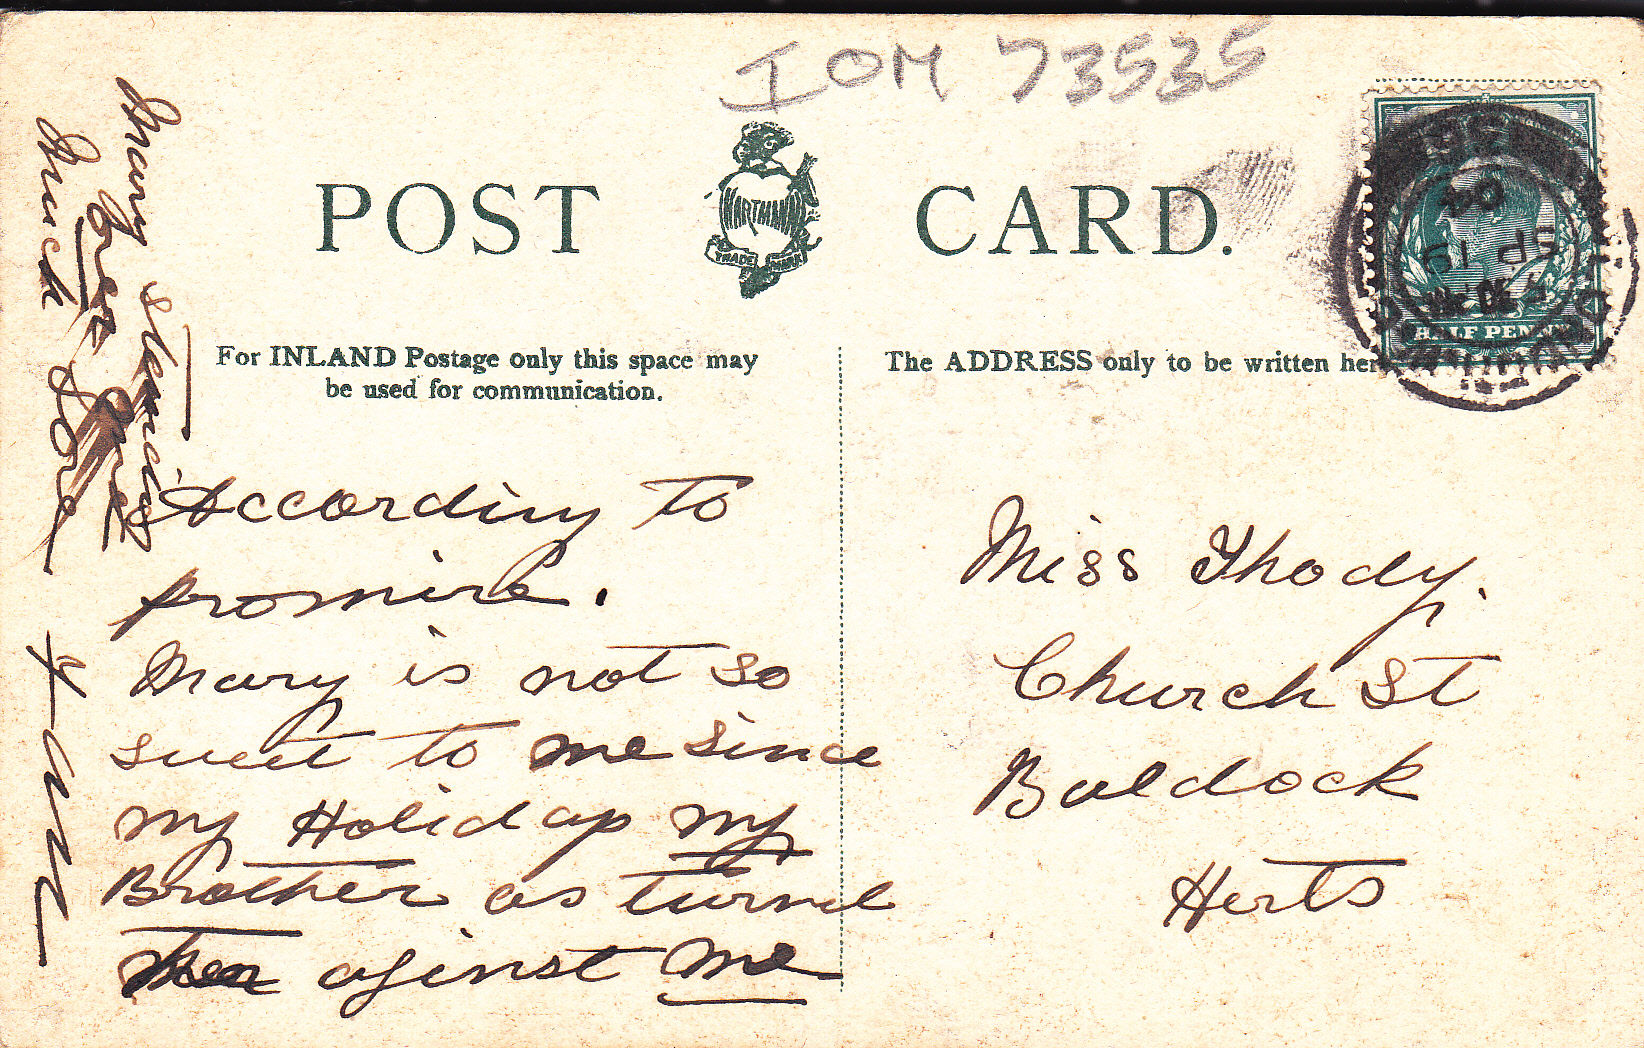 IOM 73535
POST CARD.
HARTMANN
TRADE MARK
For INLAND Postage only this space may
be used for communication.
The ADDRESS only to be written her
HALF PENNY
SP 19
04
According to
promise.
Mary is not so
sweet to me since
my Holiday my
Brother as turned
her aginst me
Miss Thody.
Church St
Baldock
Herts
Many
Much Love